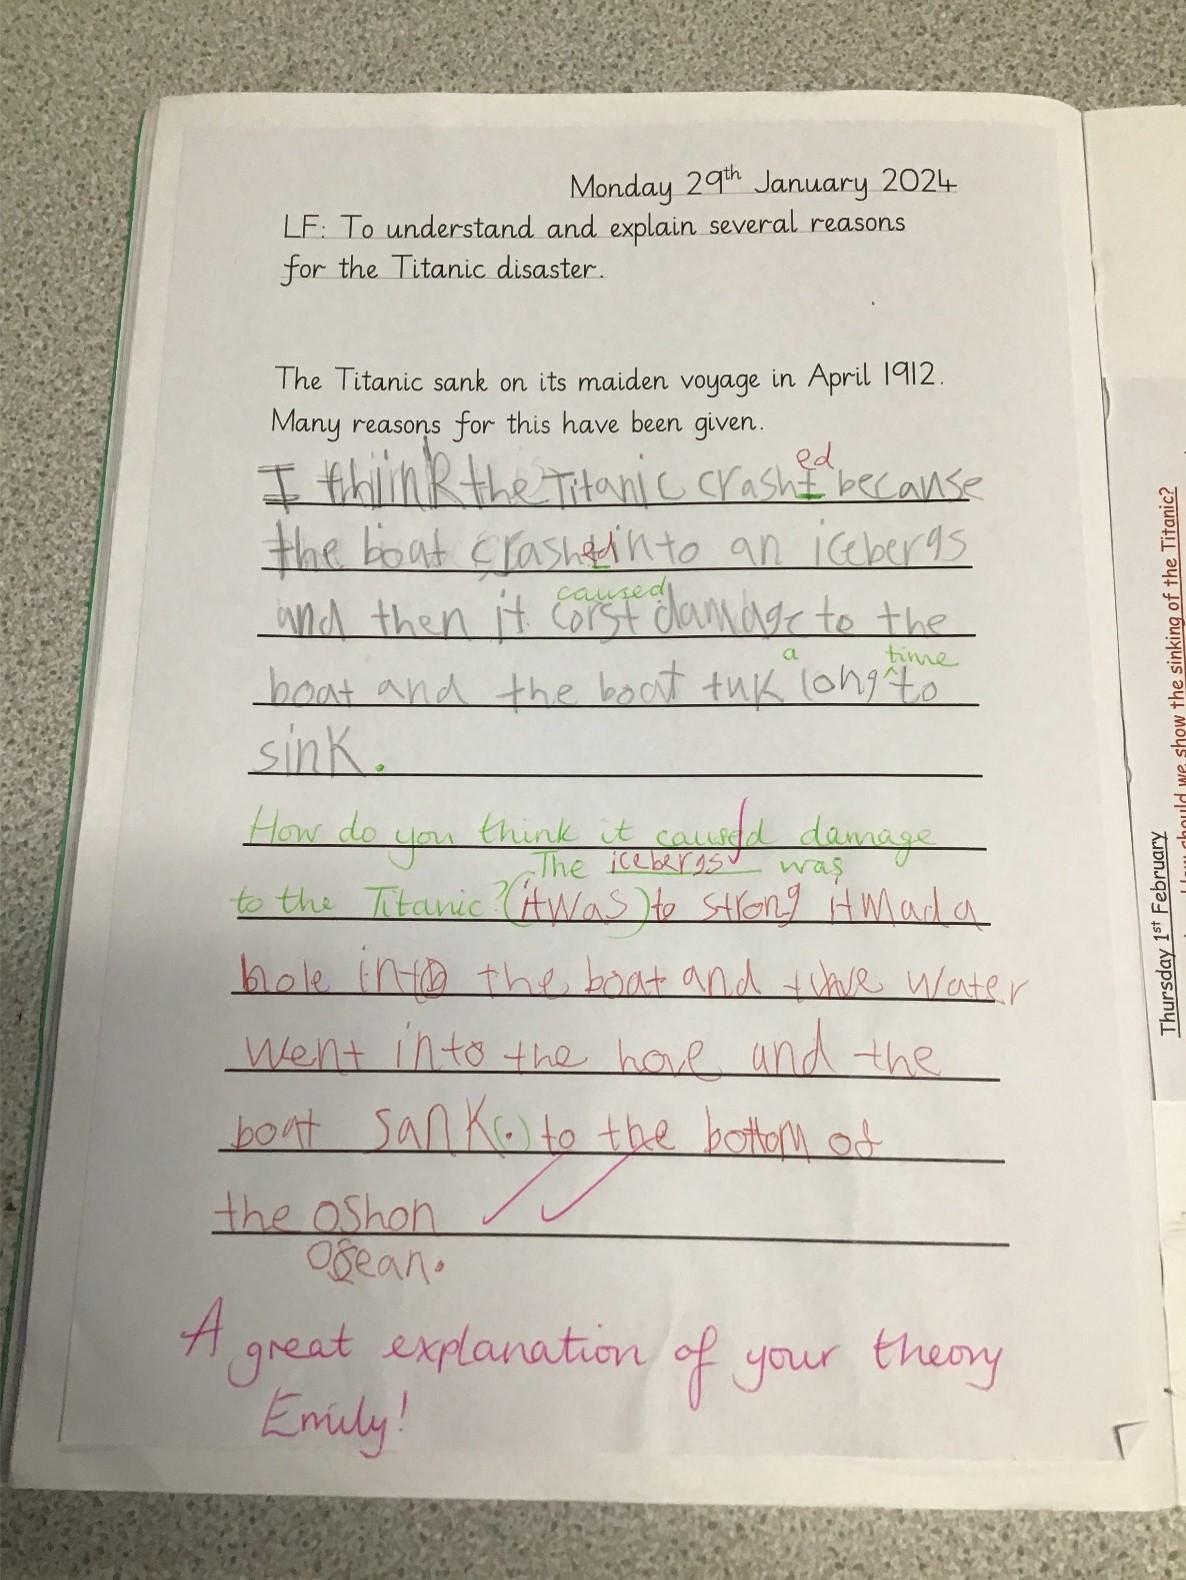 Monday 29th January 2024
LF: To understand and explain several reasons
for the Titanic disaster.
The Titanic sank on its maiden voyage in April 1912.
Many reasons for this have been given.
ed
I think the Titanic crasht because
the boat crashed into an icebergs
caused
and then it corst damage to the
a time
boat and the boat tuk long to
sink.
How do you think it caused damage
The icebergs was
to the Titanic? (itwas) to strong it mad a
hole into the boat and the water
went into the hole and the
boat sank(.) to the bottom of
the oshon
Ocean.
A great explanation of your theory
Emily!
Thursday 1st February
should we show the sinking of the Titanic?